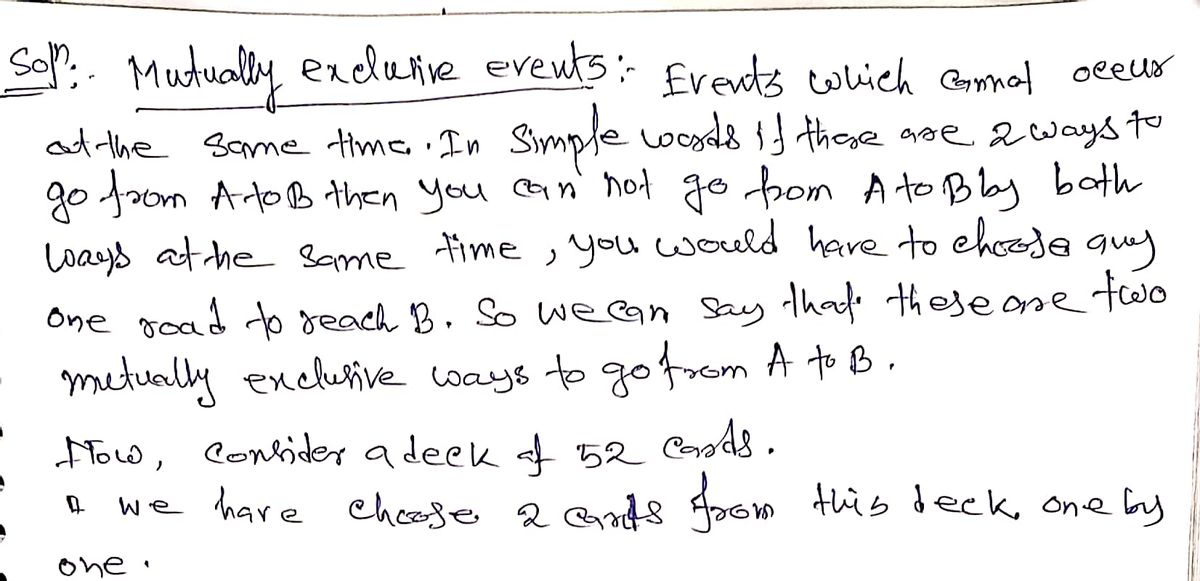 Solⁿ:- Mutually exclusive events:- Events which cannot occur
at the same time. In Simple words if there are 2 ways to
go from A to B then you can not go from A to B by both
ways at the same time, you would have to choose any
one road to reach B. So we can say that these are two
mutually exclusive ways to go from A to B.
Now, Consider a deck of 52 cards.
we have choose 2 cards from this deck one by
one.